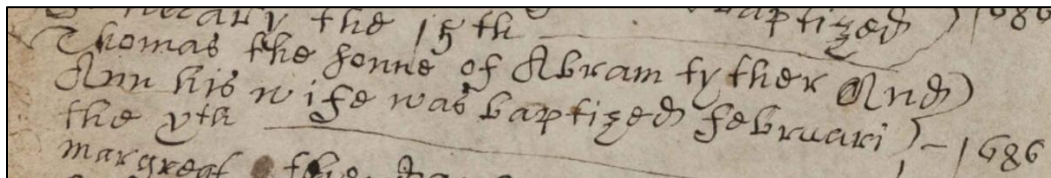 the 15th baptized 1686
Thomas the sonne of Abram tyther And
Ann his wife was baptized februari
the yth 1686
margreat the